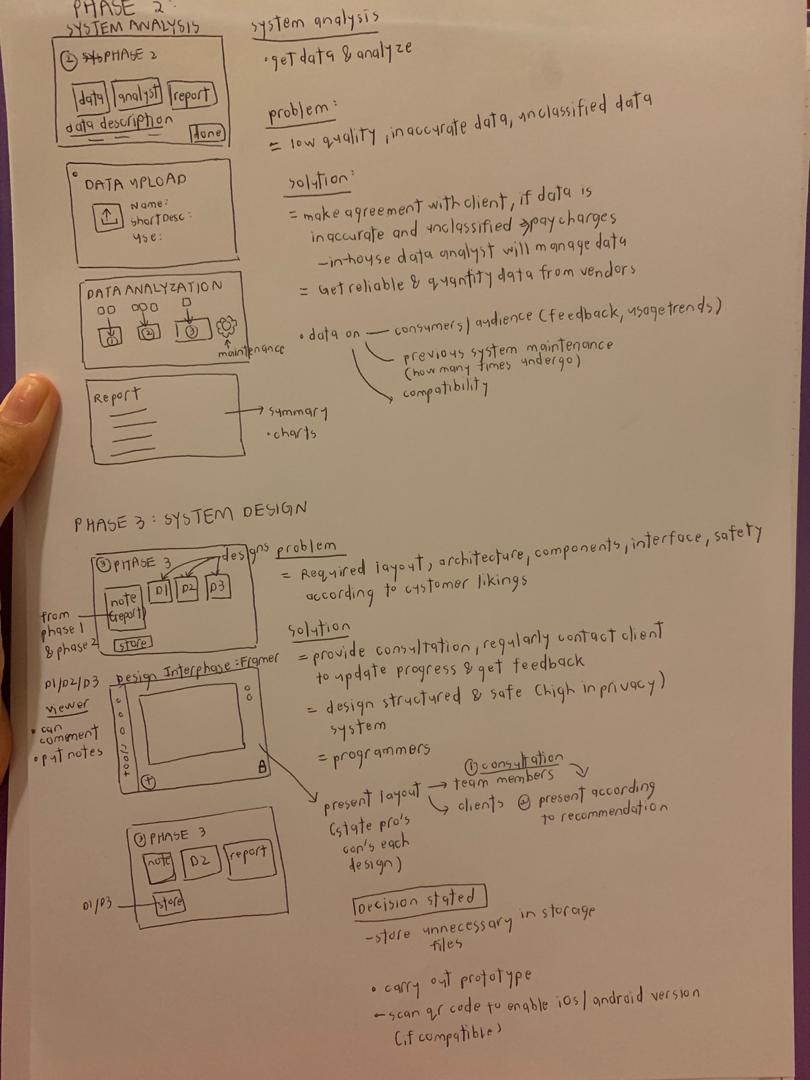 PHASE 2:
SYSTEM ANALYSIS
② PHASE 2
data analyst report
data description
done
DATA UPLOAD
Name:
short Desc:
use:
DATA ANALYZATION
① ② ③
maintenance
Report
→ summary
• charts
system analysis
• get data & analyze
problem:
= low quality, inaccurate data, unclassified data
solution:
= make agreement with client, if data is
inaccurate and unclassified → pay charges
- in-house data analyst will manage data
= Get reliable & quantity data from vendors
• data on — consumers/audience (feedback, usage trends)
previous system maintenance
(how many times undergo)
compatibility
PHASE 3: SYSTEM DESIGN
③ PHASE 3
designs
note
(report)
D1 D2 D3
store
from
phase 1
& phase 2
problem
= Required layout, architecture, components, interface, safety
according to customer likings
solution
= provide consultation, regularly contact client
to update progress & get feedback
= design structured & safe (high in privacy)
system
= programmers
D1/D2/D3
viewer
• can
comment
• put notes
Design Interphase: Framer
tool
present layout
(state pro's
con's each
design)
→ team members
clients
① consultation
② present according
to recommendation
③ PHASE 3
note D2 report
D1/D3
store
Decision stated
- store unnecessary in storage
files
• carry out prototype
- scan qr code to enable iOS/android version
(if compatible)